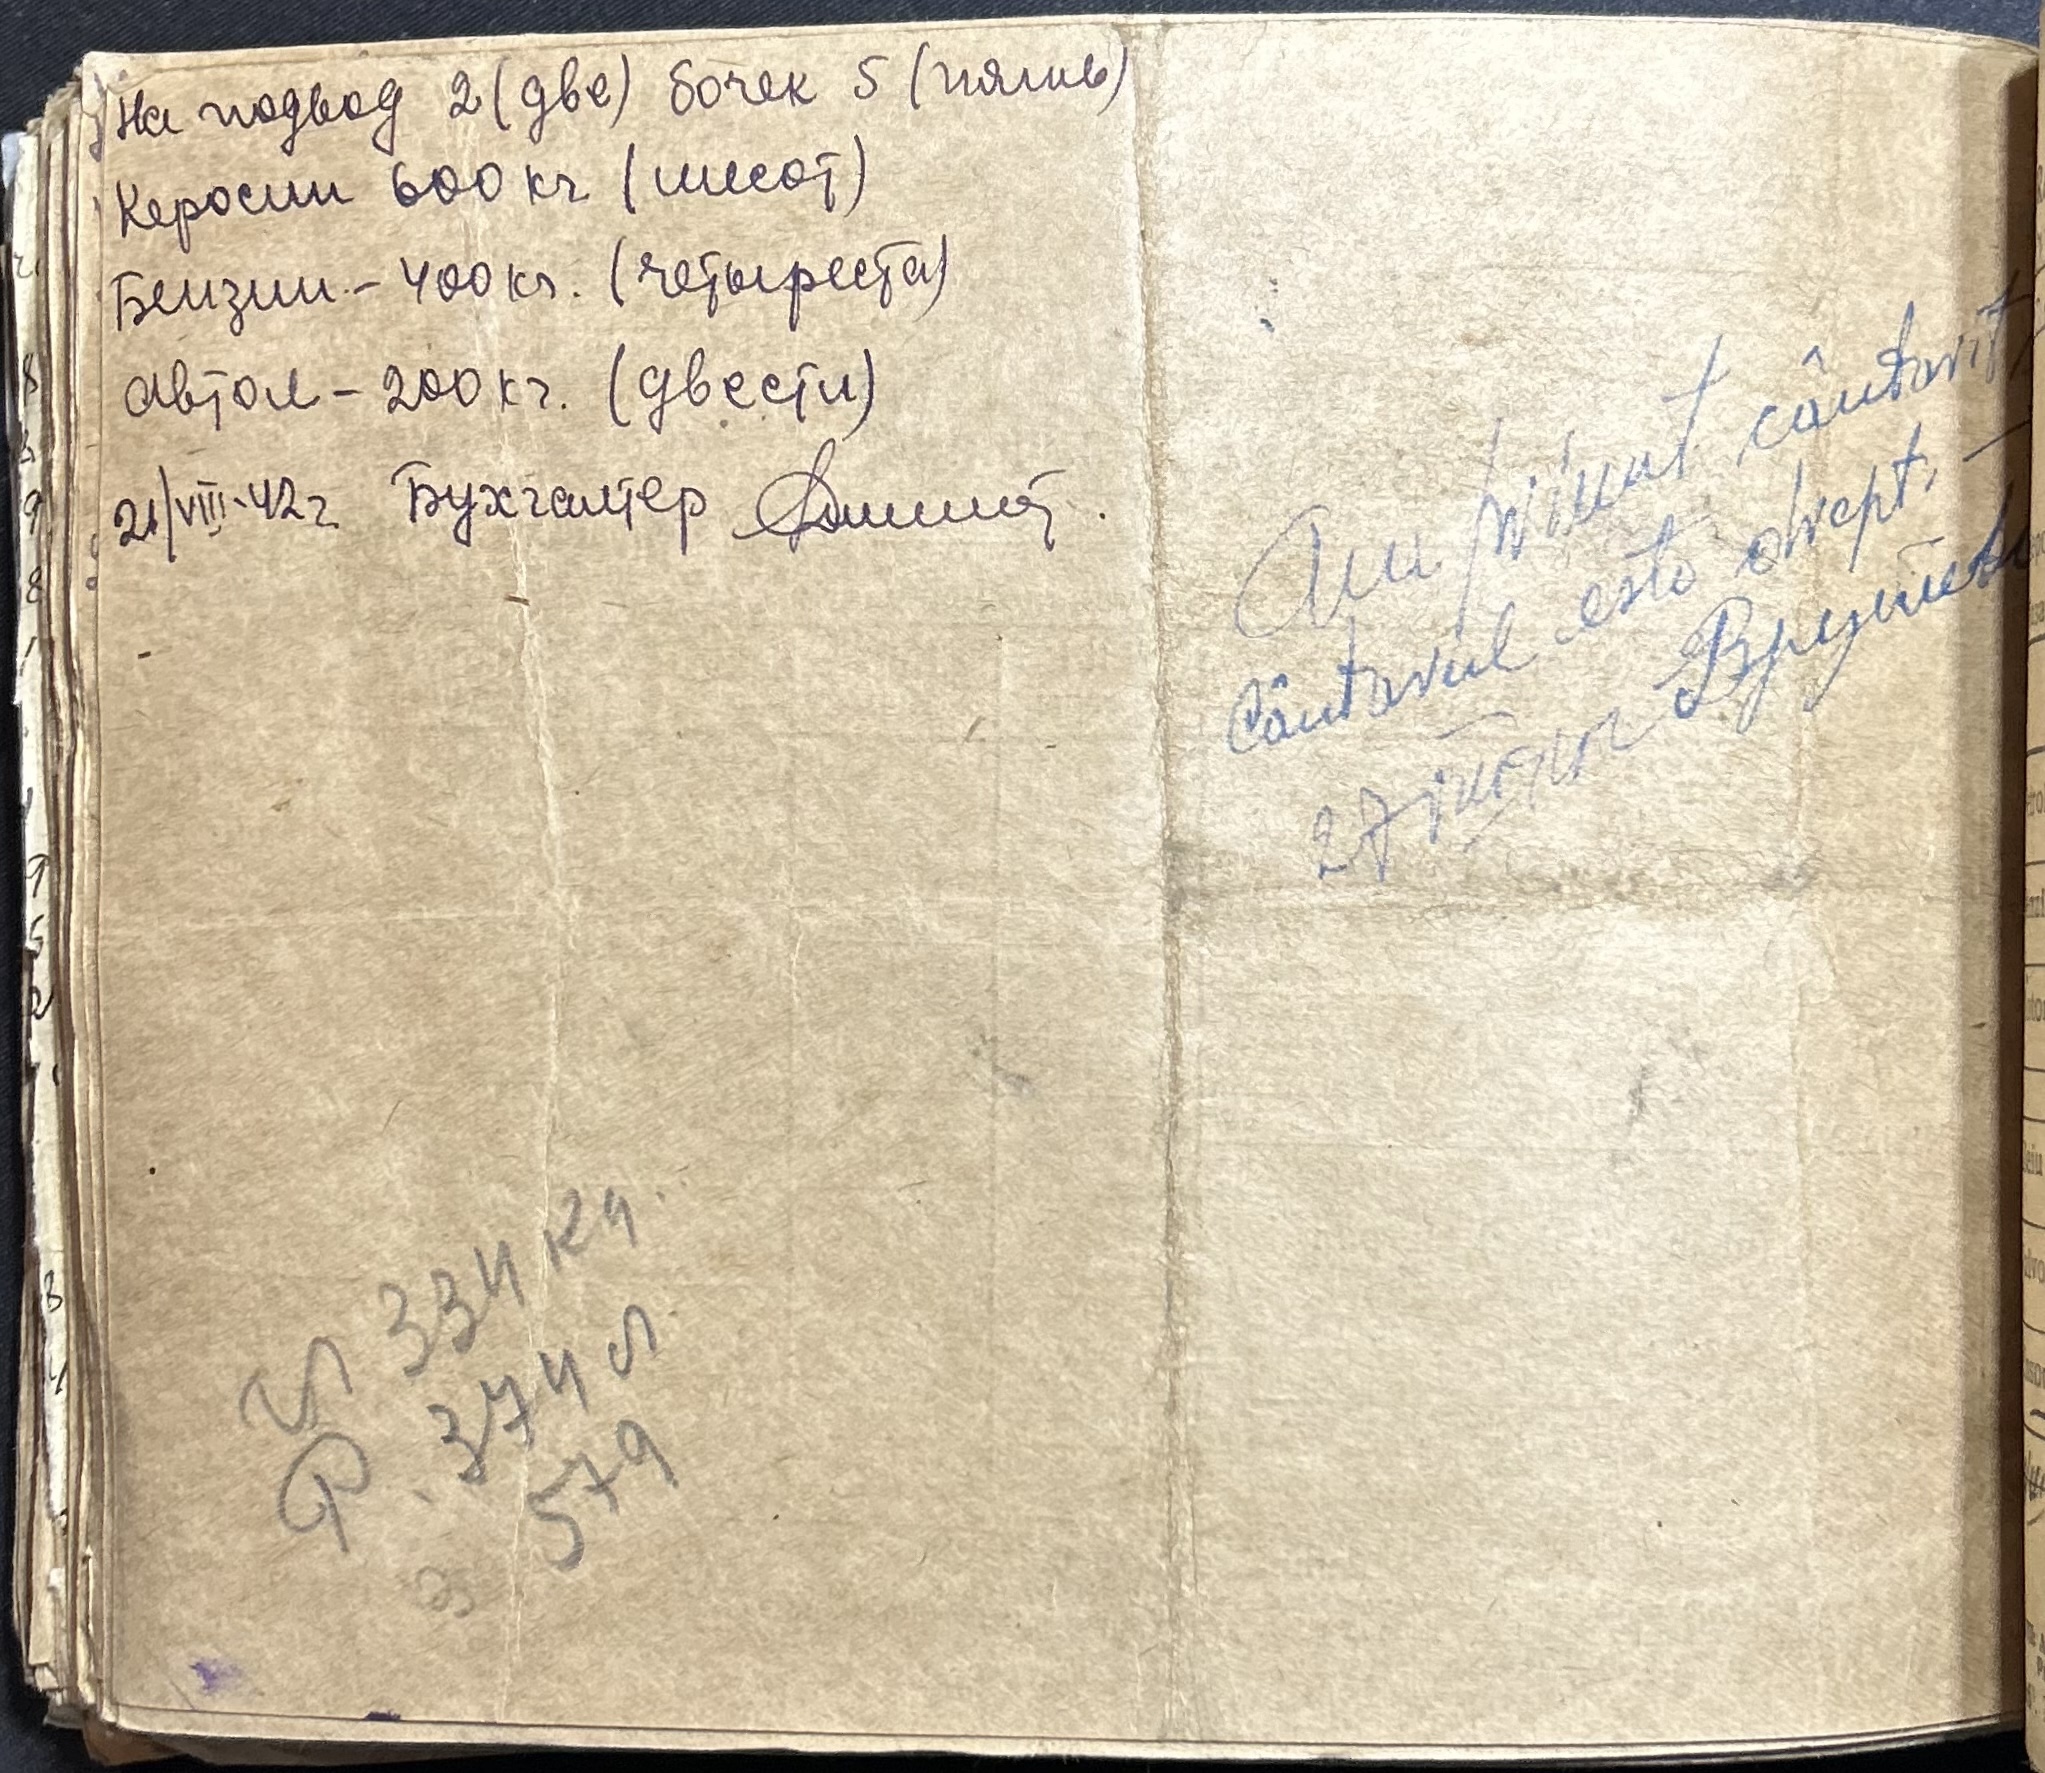 На подвод 2 (две) бочек 5 (пять)
Керосин 600 кг. (шесот)
Бензин - 400 кг. (четыреста)
Автол - 200 кг. (двести)
21/VIII-42 г. Бухгалтер
Am primit cântarit
Cântarul este drept. -
27
334 кг.
374 л
579